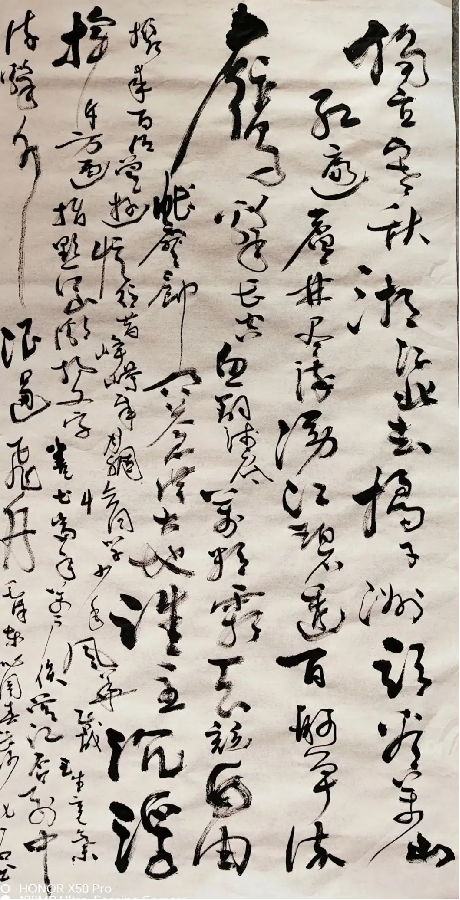 独立寒秋湘江北去橘子洲头看万山
红遍层林尽染漫江碧透百舸争流
鹰击长空鱼翔浅底万类霜天竞自由
怅寥廓问苍茫大地谁主沉浮
携来百侣曾游忆往昔峥嵘岁月稠恰同学少年风华正茂书生意气
挥斥方遒指点江山激扬文字粪土当年万户侯曾记否到中
流击水浪遏飞舟毛泽东沁园春长沙
HONOR X50 Pro